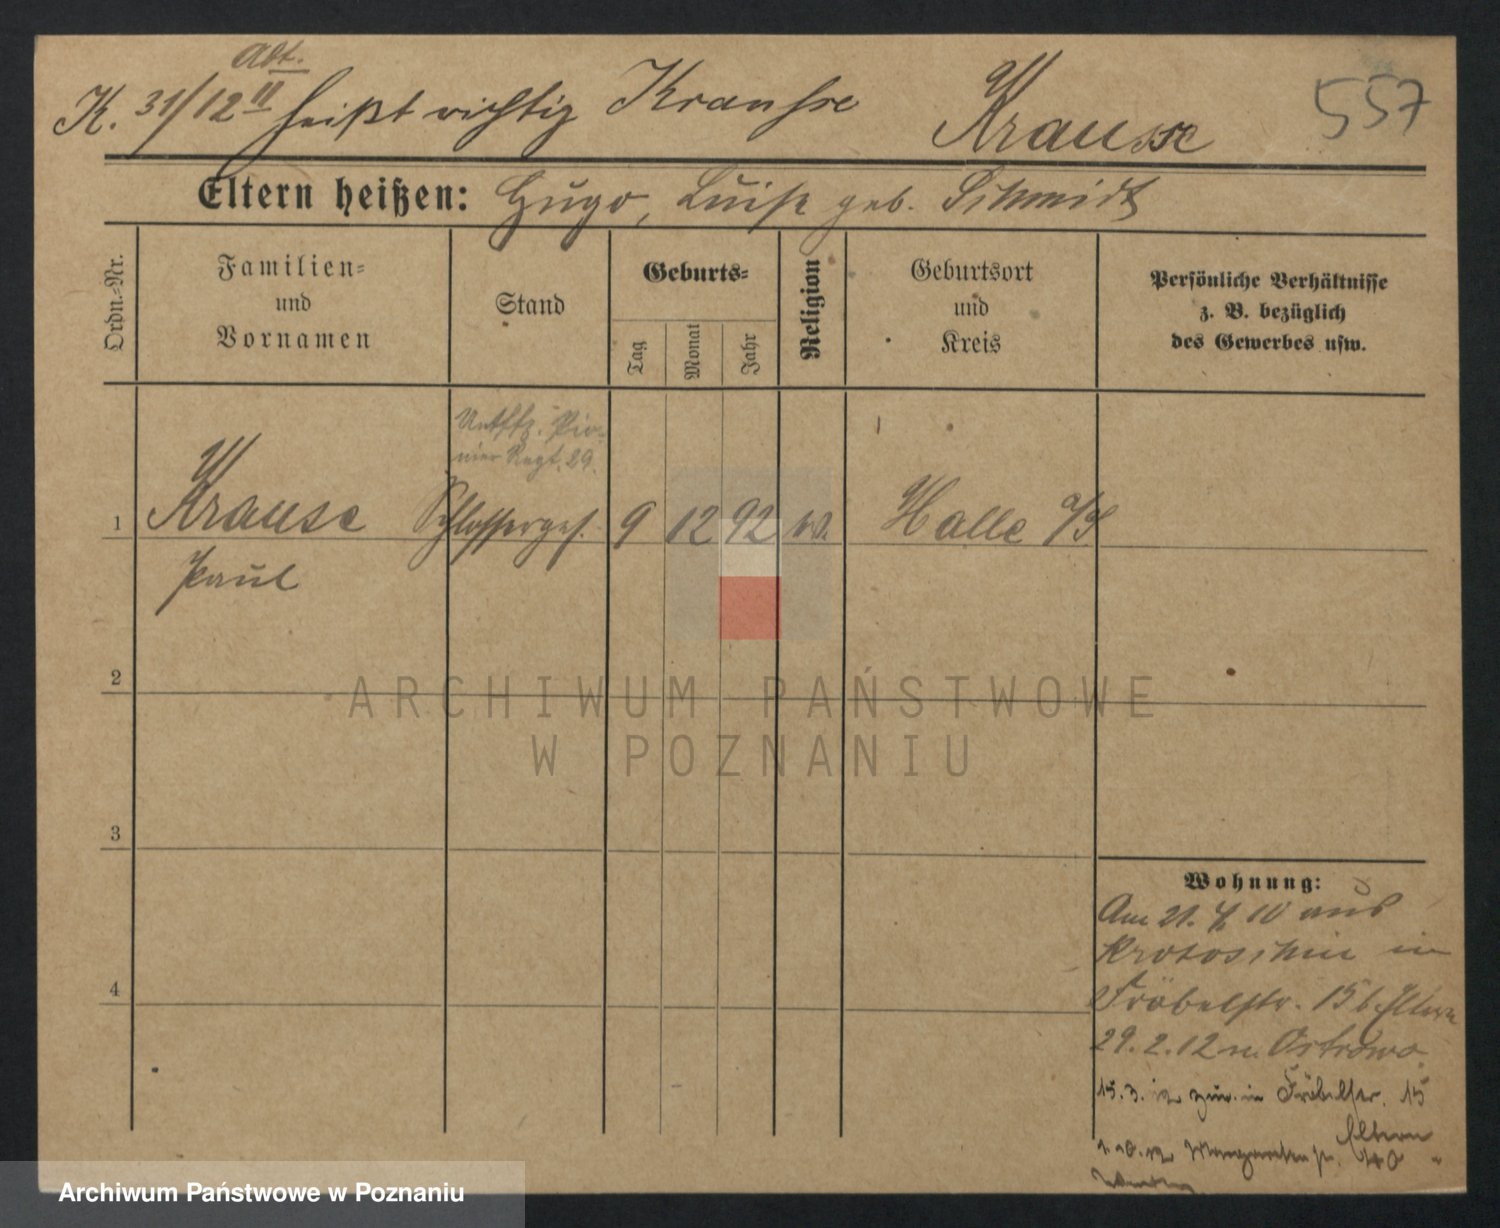 Abt.
K. 31/12 II heißt richtig Krause Krause 557
Eltern heißen: Hugo, Luise geb. Schmidt
Ordn.-Nr.
Familien-
und
Vornamen
Stand
Geburts-
Tag
Monat
Jahr
Religion
Geburtsort
und
Kreis
Persönliche Verhältnisse
z. B. bezüglich
des Gewerbes usw.
Untffz. Pio-
nier Regt. 29.
1 Krause Schlosserges. 9 12 92 Halle a/S
Paul
2
ARCHIWUM PAŃSTWOWE
W POZNANIU
3
Wohnung:
Am 21. 10 aus
Krotoschin in
Fröbelstr. 15 b. Eltern
29.2.12 n. Ostrowo.
4
15.3. 12 zur. in Fröbelstr. 15
Eltern
1.10.12 Margareten str. 40 "
Archiwum Państwowe w Poznaniu